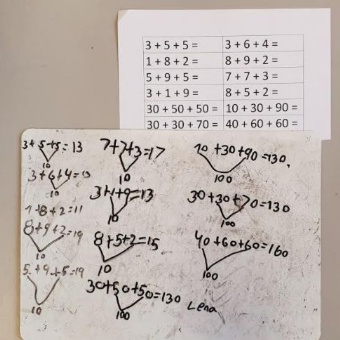 3 + 5 + 5 = 3 + 6 + 4 =
1 + 8 + 2 = 8 + 9 + 2 =
5 + 9 + 5 = 7 + 7 + 3 =
3 + 1 + 9 = 8 + 5 + 2 =
30 + 50 + 50 = 10 + 30 + 90 =
30 + 30 + 70 = 40 + 60 + 60 =
3+5+5=13
10
3+6+4=13
10
1+8+2=11
8+9+2=19
10
5+9+5=19
10
7+7+3=17
10
3+1+9=13
10
8+5+2=15
10
30+50+50=130
100
10+30+90=130.
100
30+30+70=130
100
40+60+60=160
100
Lena